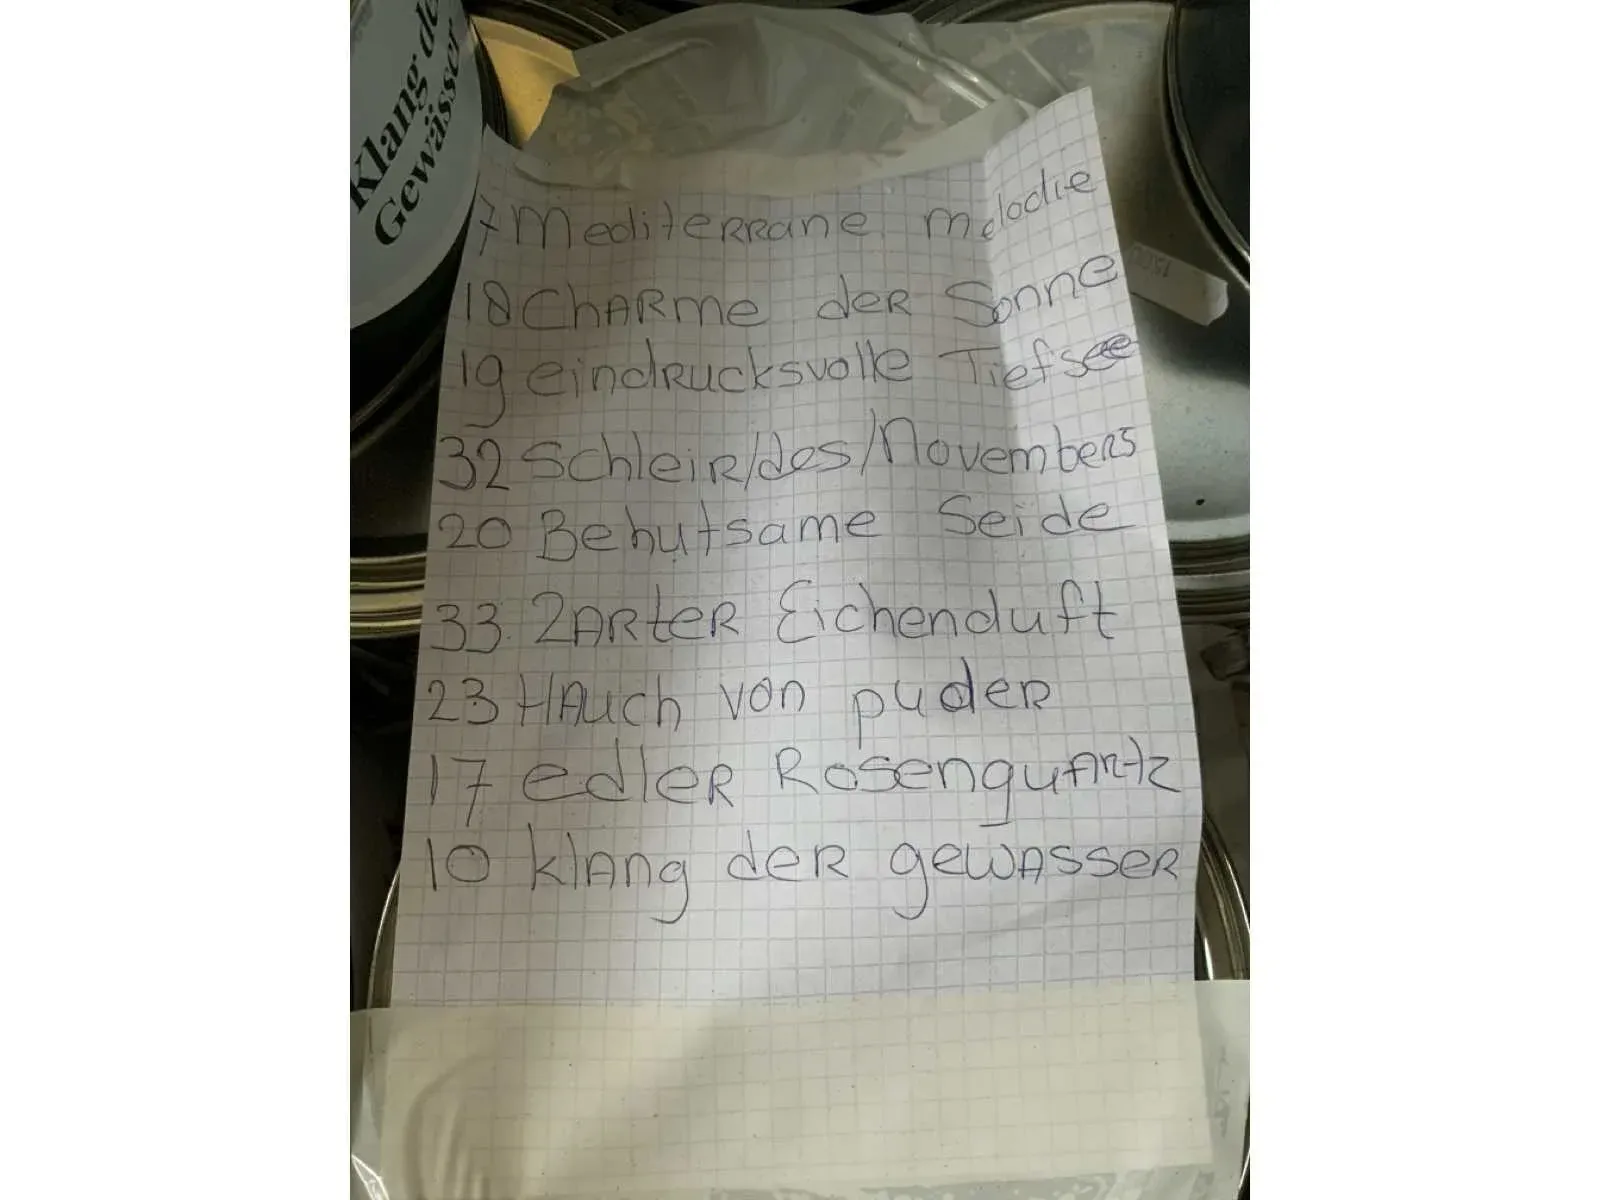 Klang de
Gewässer
7 Mediterrane Melodie
18 Charme der Sonne
19 eindrucksvolle Tiefsee
32 Schleir/des/Novembers
20 Behutsame Seide
33 Zarter Eichenduft
23 Hauch von puder
17 edler Rosenquartz
10 klang der gewasser